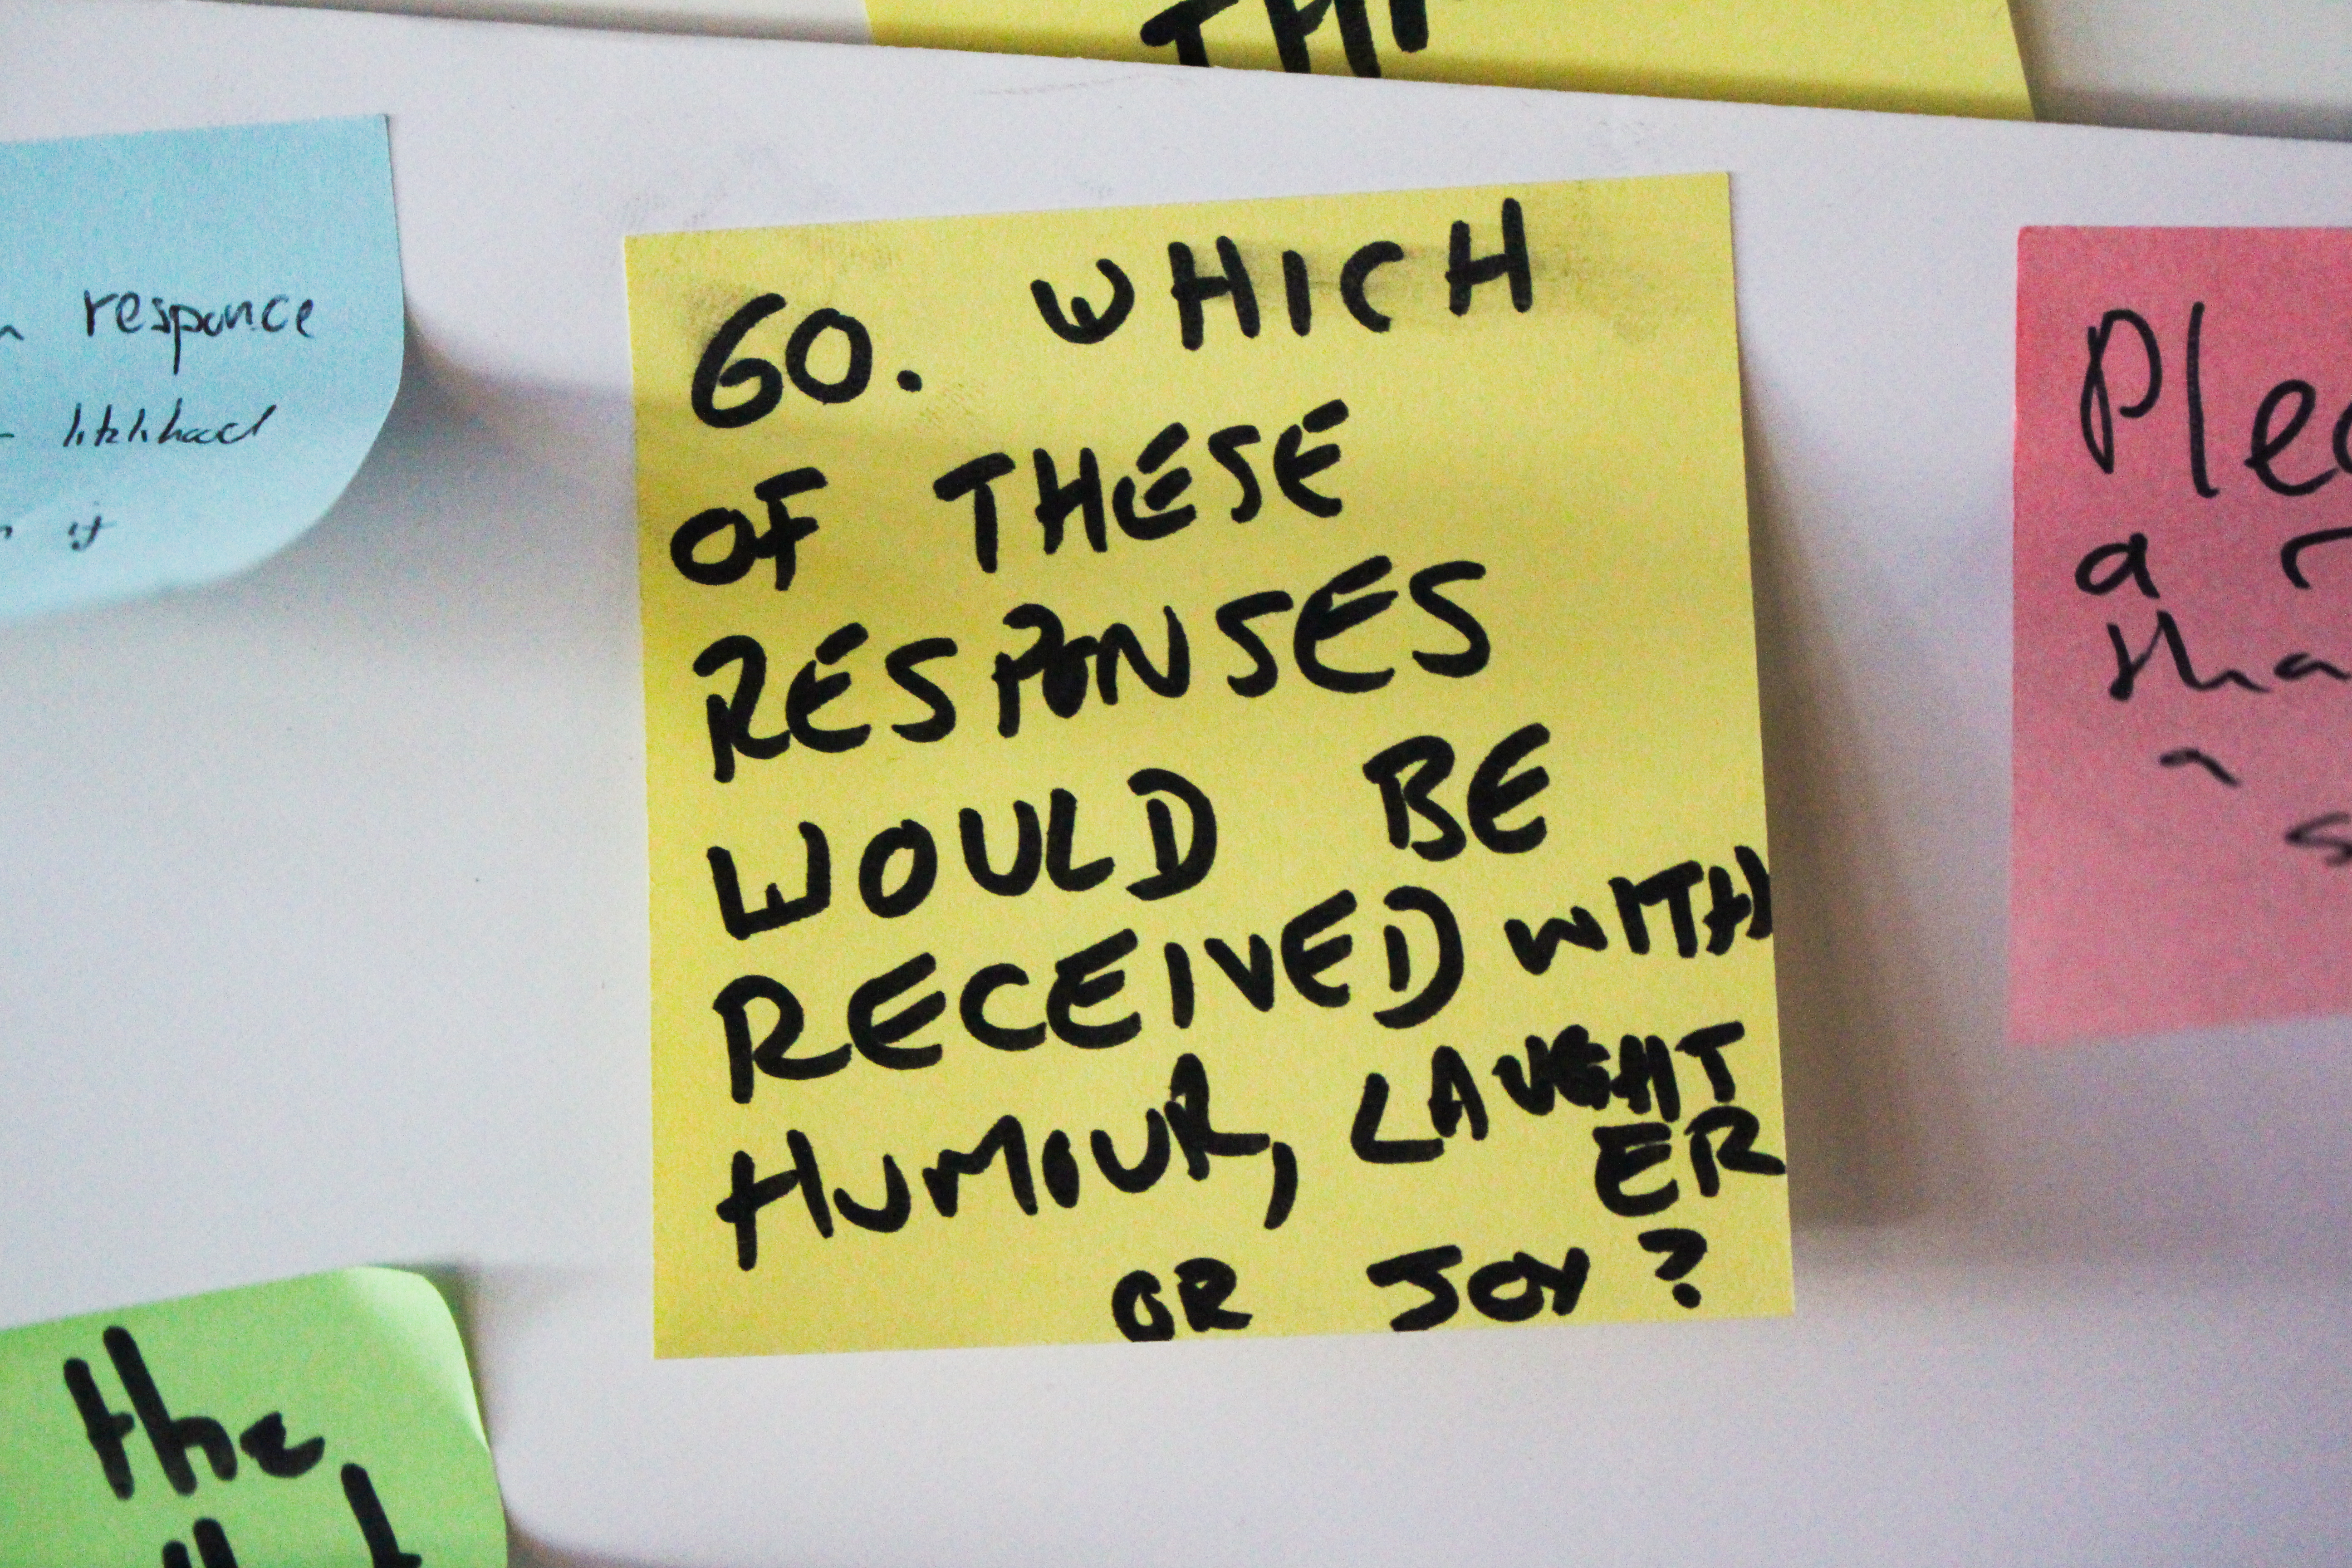 TH
responce
likelihood
if
60. WHICH
OF THESE
RESPONSES
WOULD BE
RECEIVED WITH
HUMOUR, LAUGHT
ER
OR JOY?
Plea
a
tha
a
s
the